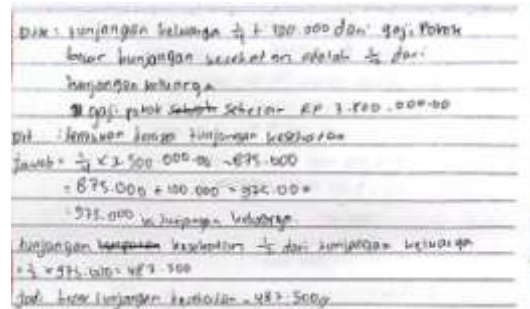 Dik : tunjangan keluarga 1/4 + 100.000 dari gaji pokok
besar tunjangan kesehatan adalah 1/2 dari
tunjangan keluarga
gaji pokok sebesar RP 3.500.000.00
Dit : tentukan besar tunjangan kesehatan
Jawab = 1/4 x 3.500.000.00 = 875.000
= 875.000 + 100.000 = 975.000
= 975.000 tunjangan keluarga.
tunjangan kesehatan 1/2 dari tunjangan keluarga
= 1/2 x 975.000 = 487.500
Jadi besar tunjangan kesehatan = 487.500